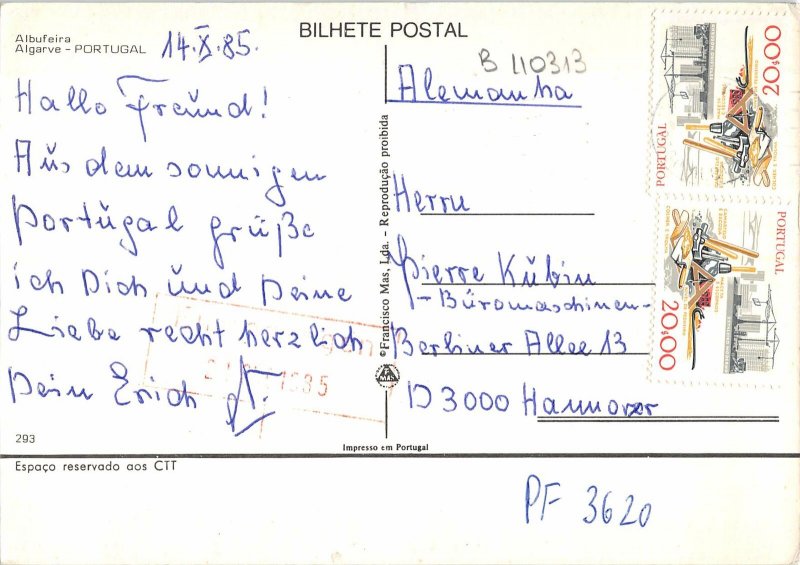 BILHETE POSTAL
Albufeira
Algarve - PORTUGAL
14.X.85.
Hallo Freund!
Aus dem sonnigen
Portugal grüße
ich Dich und Deine
Liebe recht herzlich
Dein Erich
293
©Francisco Mas, Lda. - Reprodução proibida
Impresso em Portugal
B 110313
Alemanha
Herrn
Pierre Kubin
- Büromaschinen -
Berliner Allee 13
D 3000 Hannover
PORTUGAL
20$00
PORTUGAL
20$00
Espaço reservado aos CTT
PF 3620